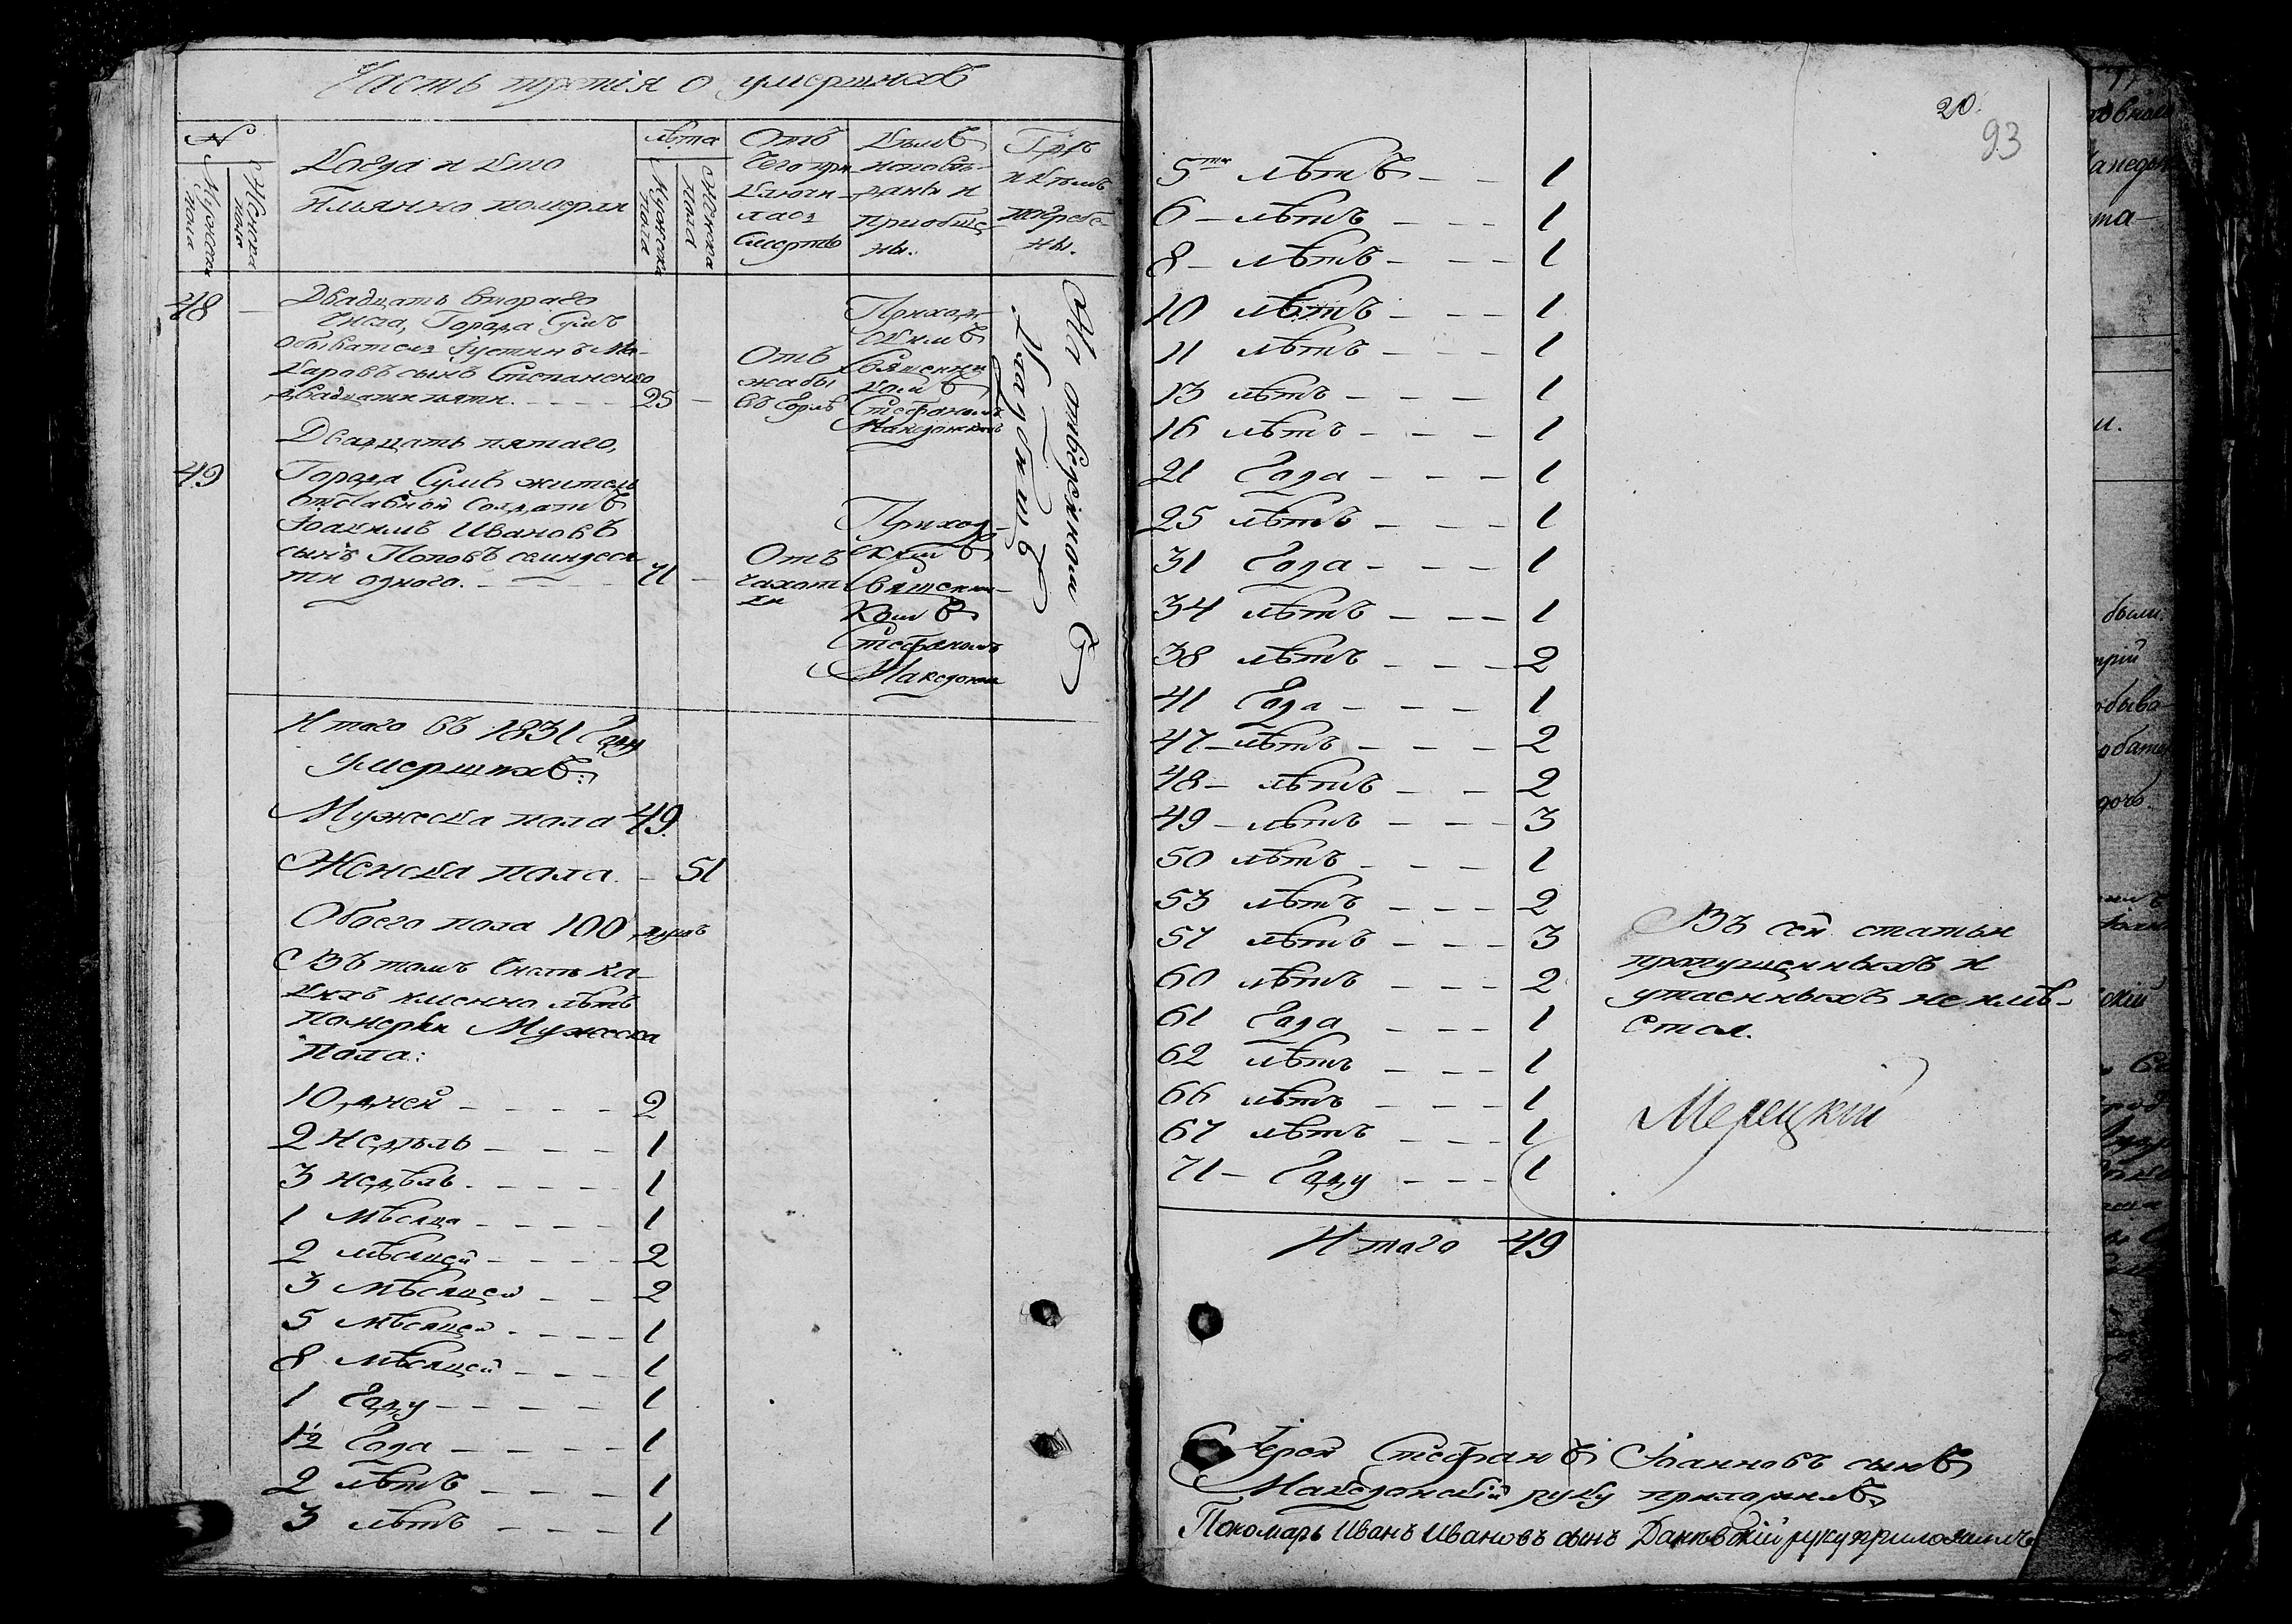 Часть третія о умершихъ
№
Мужеска пола
Женска пола
Когда и кто
Имянно померли
лѣта
Мужеска пола
Женска пола
Отъ
чего при
ключи
лась
смерть
Кѣмъ
исповѣ-
даны и
приобще
ны.
Гдѣ
и кѣмъ
погребе-
ны.
48 —
Двадцать втораго
числа, Города Сумъ
обыватель Іустинъ Ма-
каровъ сынъ Степаненко
двадцати пяти. — — — 25 —
Отъ
жабы
въ горлѣ
Приход-
скимъ
Священни
комъ
Стефаномъ
Македонскимъ
На отведенномъ
кладбищѣ
Двадцать пятаго,
49
Города Сумъ житель
отставной солдатъ
Іоакимъ Ивановъ
сынъ Поповъ семидеся
ти одного. — — — 71 —
Отъ
чахот
ки
Приход-
скимъ
Священни-
комъ
Стефаномъ
Македонск
Итого въ 1831 Году
умершихъ:
Мужеска пола 49.
Женска пола. — 51
Обоего пола 100 душъ
Въ томъ числѣ ка-
кихъ именно лѣтъ
померли Мужеска
пола:
10 дней — — — — 2
2 недѣль — — — — 1
3 недѣль. — — — — 1
1 мѣсяца — — — — 1
2 мѣсяцей — — — — 2
3 мѣсяцей — — 2
5 мѣсяцей. — — — 1
8 мѣсяцей — — — 1
1 Году — — — — 1
1½ Года — — — — 1
2 лѣтъ — — — — 1
3 лѣтъ — — — 1
20.
93
5ти лѣтъ — — 1
6 — лѣтъ — — — 1
8 — лѣтъ — — — 1
10 лѣтъ — — — 1
11 лѣтъ — — — 1
13 лѣтъ — — — 1
16 лѣтъ — — — 1
21 Года — — — 1
25 лѣтъ — — — 1
31 Года — — — 1
34 лѣтъ — — — 1
38 лѣтъ — — — 2
41 Года — — — 1
47 — лѣтъ — — — 2
48 — лѣтъ — — 2
49 — лѣтъ — — — 3
50 лѣтъ — — — 1
53 лѣтъ — — — 2
57 лѣтъ — — — 3
60 лѣтъ — — — 2
61 Года — — — 1
62 лѣтъ — — — 1
66 лѣтъ — — — 1
67 лѣтъ — — — 1
71 — Году — — — 1
Итого 49
Въ сей статьи
пропущенныхъ и
утаенныхъ не имѣ-
ется.
Мерецкій
Іерей Стефанъ Іоанновъ сынъ
Македонскій руку приложилъ
Пономарь Иванъ Ивановъ сынъ руку приложилъ